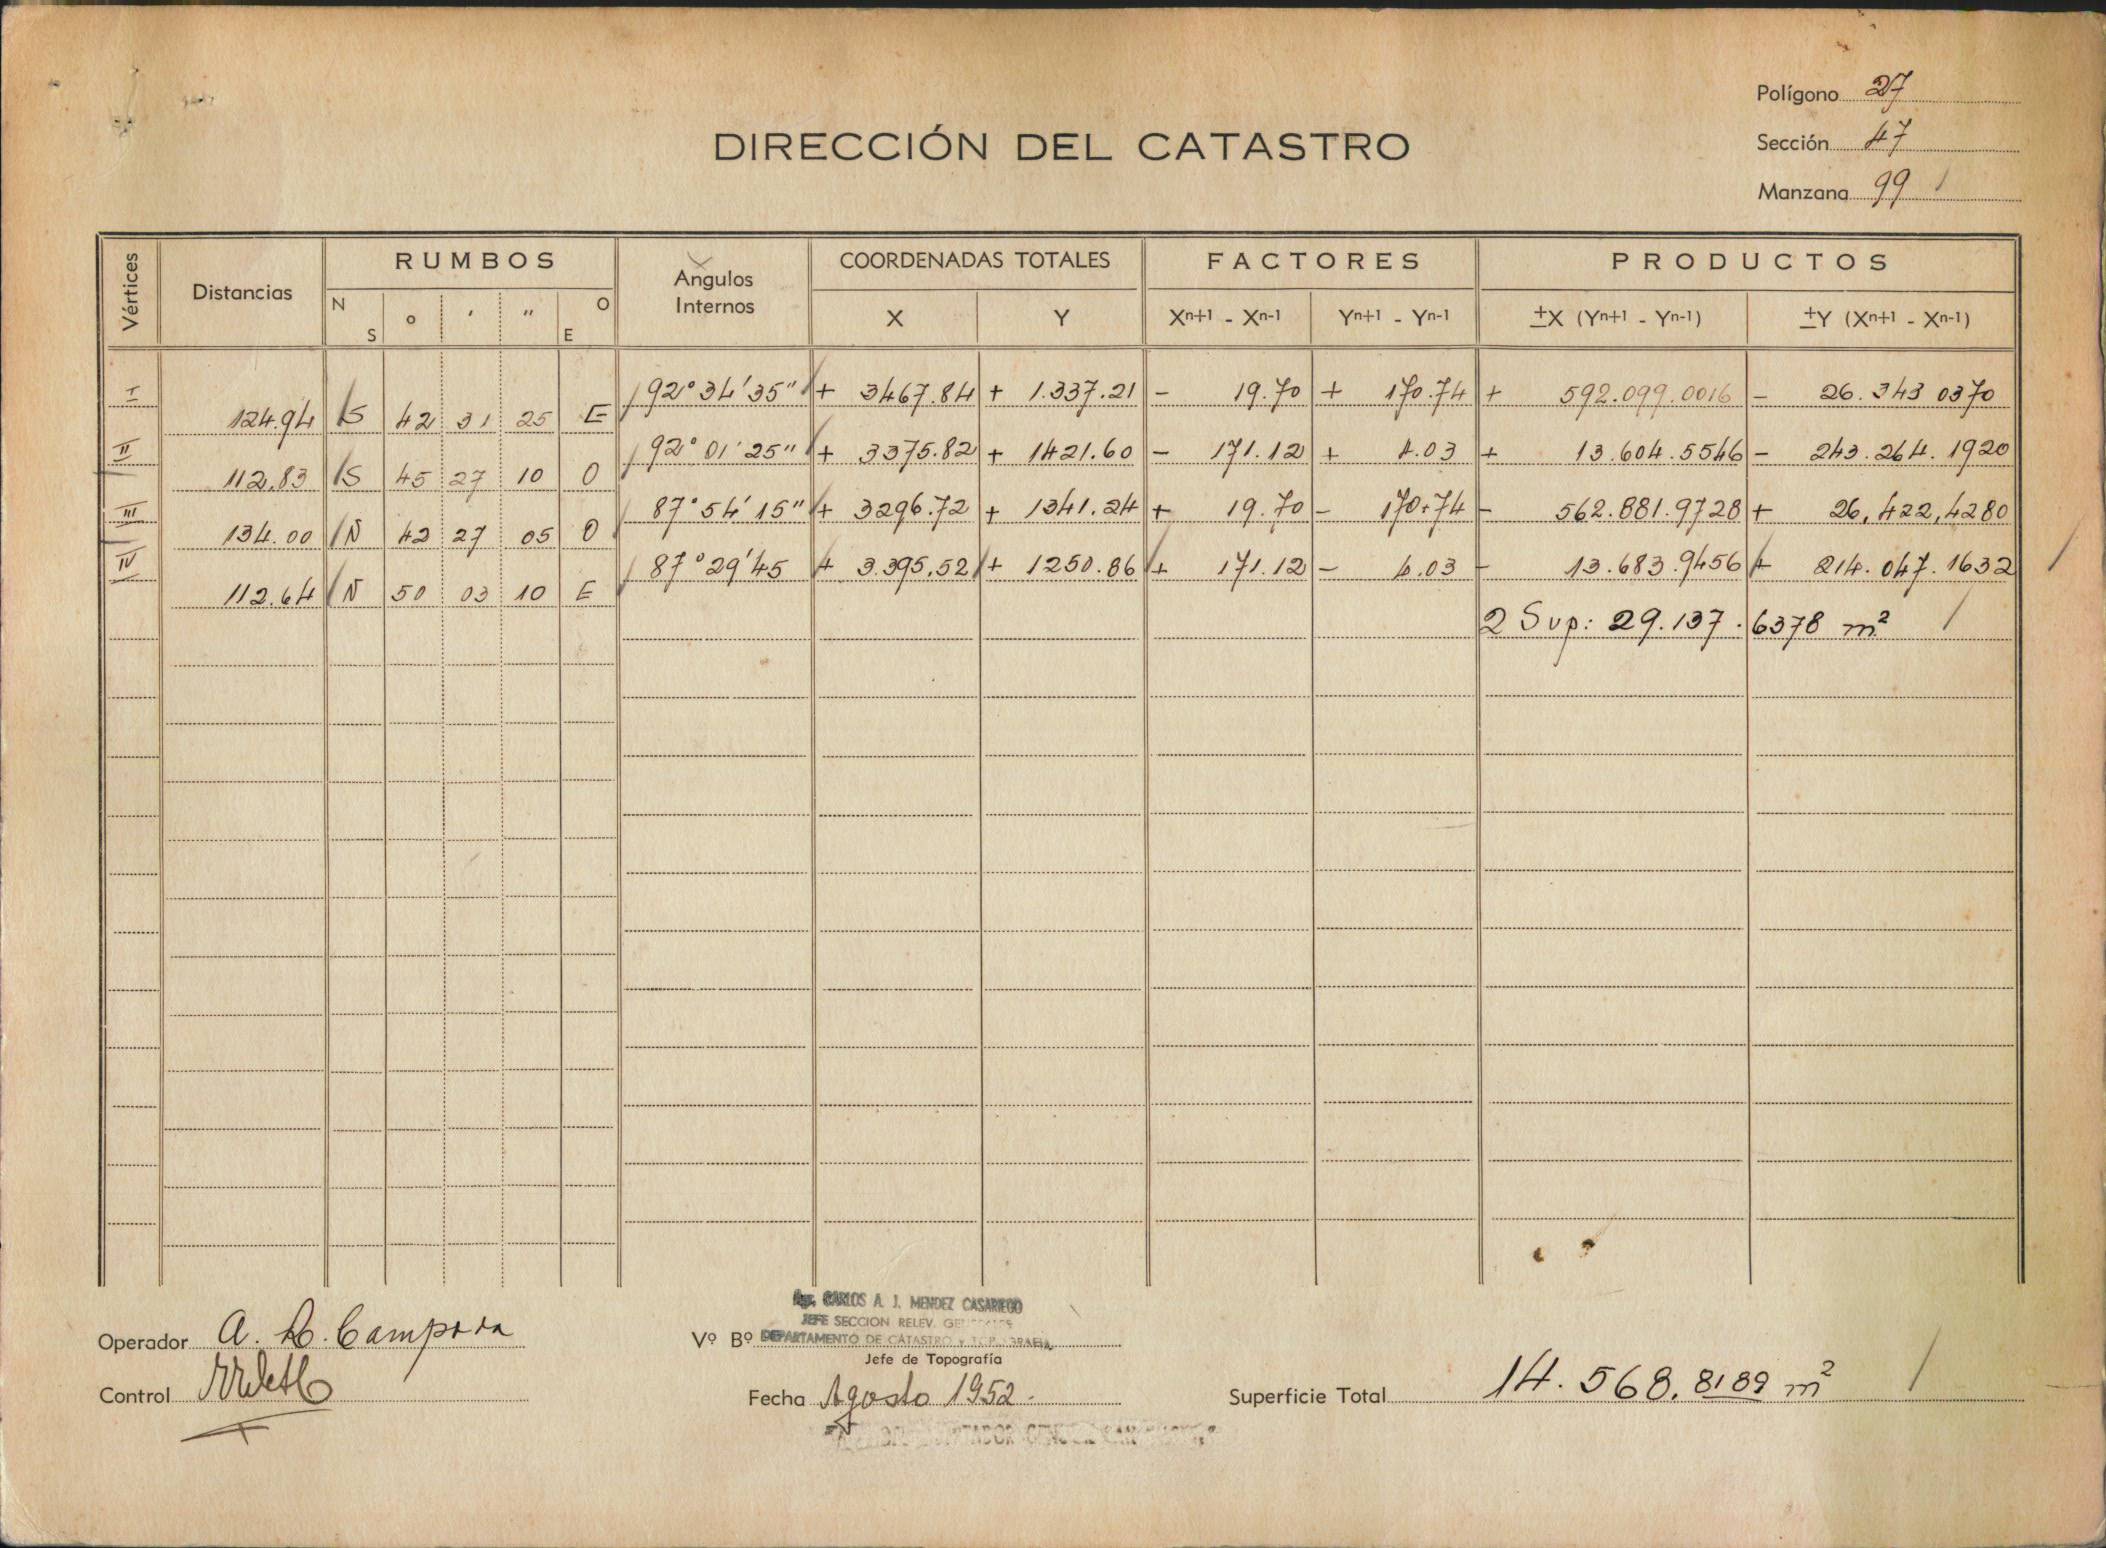 Polígono 27
DIRECCIÓN DEL CATASTRO
Sección 47
Manzana 99
Vértices Distancias RUMBOS Angulos Internos COORDENADAS TOTALES FACTORES PRODUCTOS
N S o ' " O E X Y Xn+1 - Xn-1 Yn+1 - Yn-1 ±X (Yn+1 - Yn-1) ±Y (Xn+1 - Xn-1)
I 92° 34' 35" + 3467.84 + 1.337.21 - 19.70 + 170.74 + 592.099.0016 - 26.343 0370
124.94 S 42 31 25 E
II 92° 01' 25" + 3375.82 + 1421.60 - 171.12 + 4.03 + 13.604.5546 - 243.264.1920
112.83 S 45 27 10 O
III 87° 54' 15" + 3296.72 + 1341.24 + 19.70 - 170.74 - 562.881.9728 + 26,422,4280
134.00 N 42 27 05 O
IV 87° 29' 45 + 3.395,52 + 1250.86 + 171.12 - 4.03 - 13.683.9456 + 214.047.1632
112.64 N 50 03 10 E
2 Sup: 29.137.6378 m²
Agr. CARLOS A. J. MENDEZ CASARIEGO
JEFE SECCION RELEV.
Operador A. Campora
Vº Bº DEPARTAMENTO DE CATASTRO y TOPOGRAFIA
Jefe de Topografía
Control
Fecha Agosto 1952.
Superficie Total 14.568.8189 m²